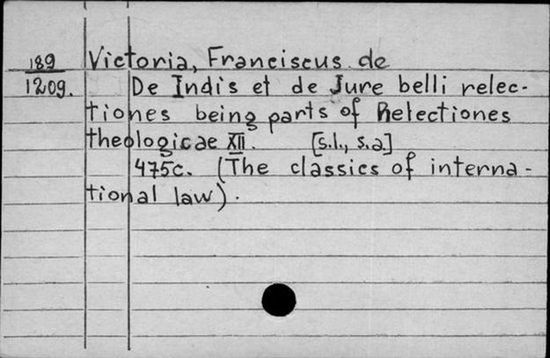 189 Victoria, Franciscus de
1209. De Indis et de Jure belli relec-
tiones being parts of Relectiones
theologicae XII. [s.l., s.a.]
475c. (The classics of interna-
tional law).